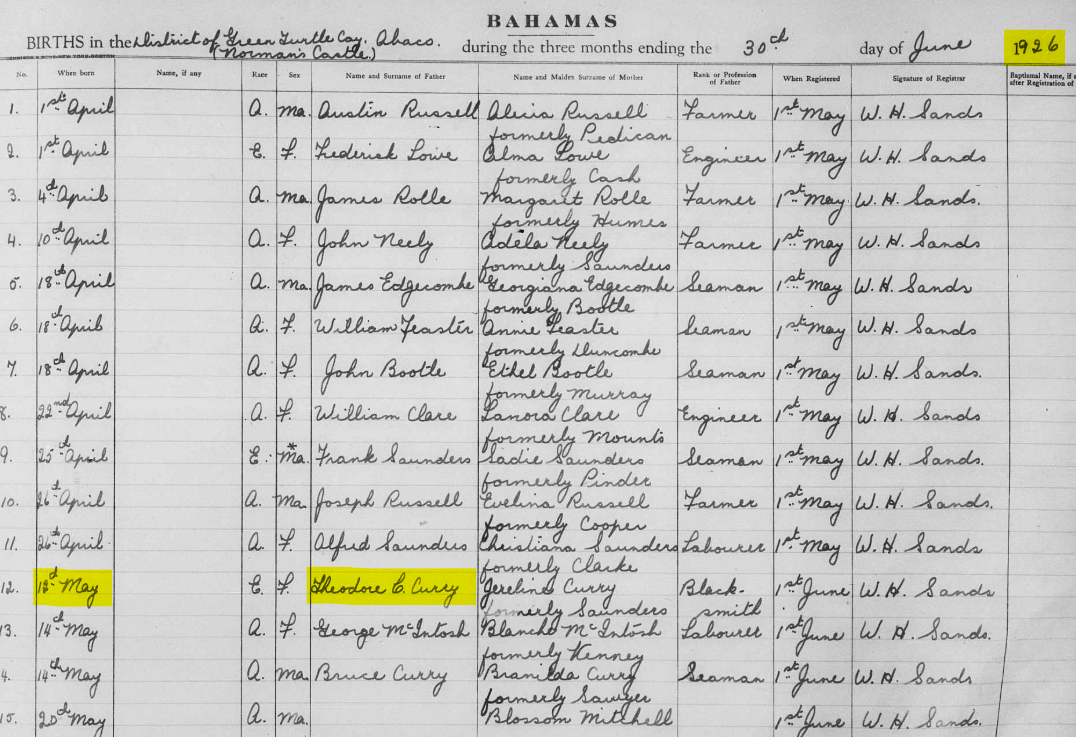 BAHAMAS
BIRTHS in the District of Green Turtle Cay. Abaco. during the three months ending the 30th day of June 1926
(Norman's Castle.)
No. When born Name, if any Race Sex Name and Surname of Father Name and Maiden Surname of Mother Rank or Profession of Father When Registered Signature of Registrar Baptismal Name, if after Registration of
1. 1st April A. Ma. Austin Russell Alicia Russell Farmer 1st May W. H. Sands
formerly Pedican
2. 1st April E. F. Frederick Lowe Alma Lowe Engineer 1st May W. H. Sands
formerly Cash
3. 4th April A. Ma. James Rolle Margaret Rolle Farmer 1st May W. H. Sands.
formerly Humes
4. 10th April A. F. John Neely Adela Neely Farmer 1st May W. H. Sands
formerly Saunders
5. 18th April A. Ma. James Edgecombe Georgiana Edgecombe Seaman 1st May W. H. Sands
formerly Bootle
6. 18th April A. F. William Feaster Annie Feaster Seaman 1st May W. H. Sands
formerly Duncombe
7. 18th April A. F. John Bootle Ethel Bootle Seaman 1st May W. H. Sands.
formerly Murray
8. 22nd April A. F. William Clare Lanora Clare Engineer 1st May W. H. Sands
formerly Mounts
9. 25th April E. Ma.* Frank Saunders Sadie Saunders Seaman 1st May W. H. Sands.
formerly Pinder
10. 26th April A. Ma. Joseph Russell Evelina Russell Farmer 1st May W. H. Sands.
formerly Cooper
11. 26th April A. F. Alfred Saunders Christiana Saunders Labourer 1st May W. H. Sands
formerly Clarke
12. 12th May E. F. Theodore C. Curry Jereline Curry Black- 1st June W. H. Sands
formerly Saunders smith
13. 14th May A. F. George McIntosh Blanche McIntosh Labourer 1st June W. H. Sands.
formerly Kenney
4. 14th May A. Ma. Bruce Curry Branilda Curry Seaman 1st June W. H. Sands
formerly Sawyer
15. 20th May A. Ma. Blossom Mitchell 1st June W. H. Sands.